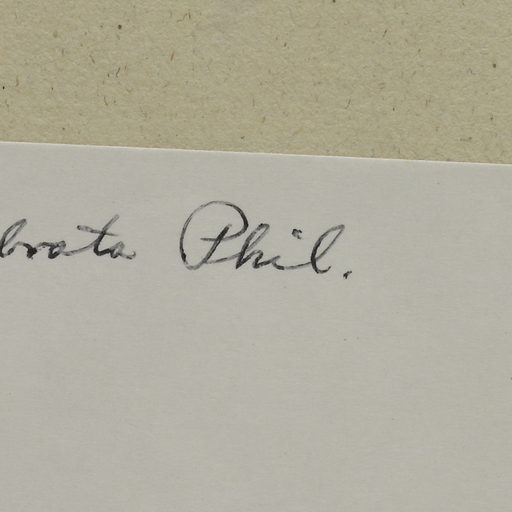 brata Phil.